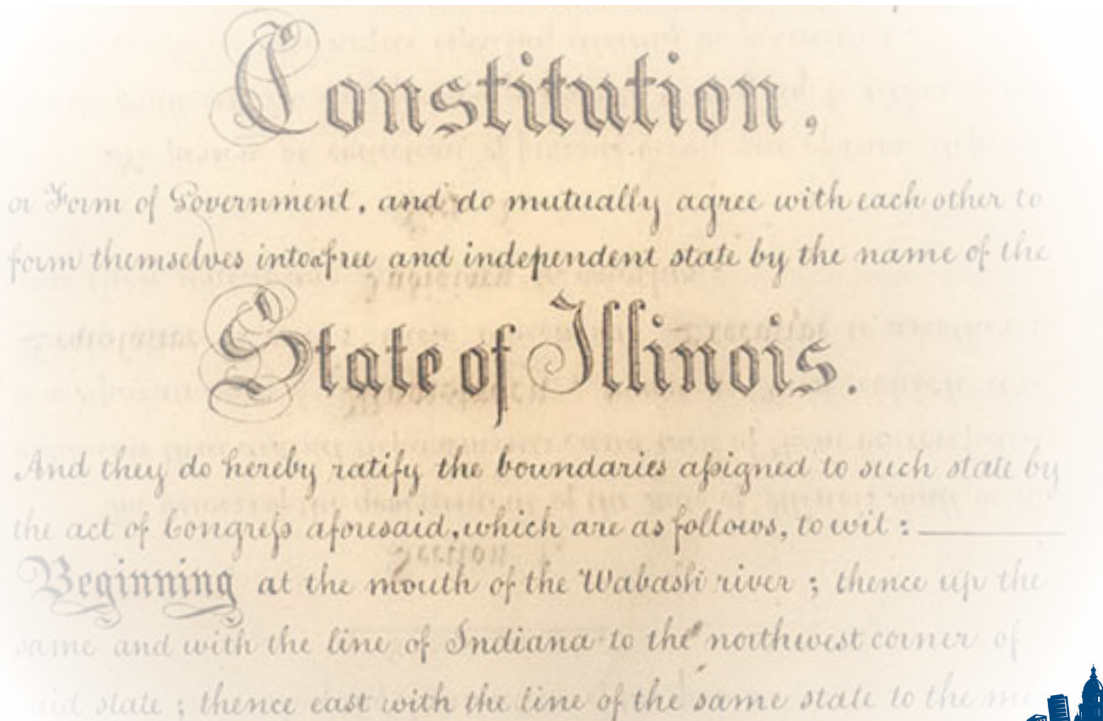 Constitution,
or Form of Government, and do mutually agree with each other to
form themselves into a free and independent state by the name of the
State of Illinois.
And they do hereby ratify the boundaries aſsigned to such state by
the act of Congreſs aforesaid, which are as follows, to wit:
Beginning at the mouth of the Wabash river; thence up the
same and with the line of Indiana to the northwest corner of
said state; thence east with the line of the same state to the